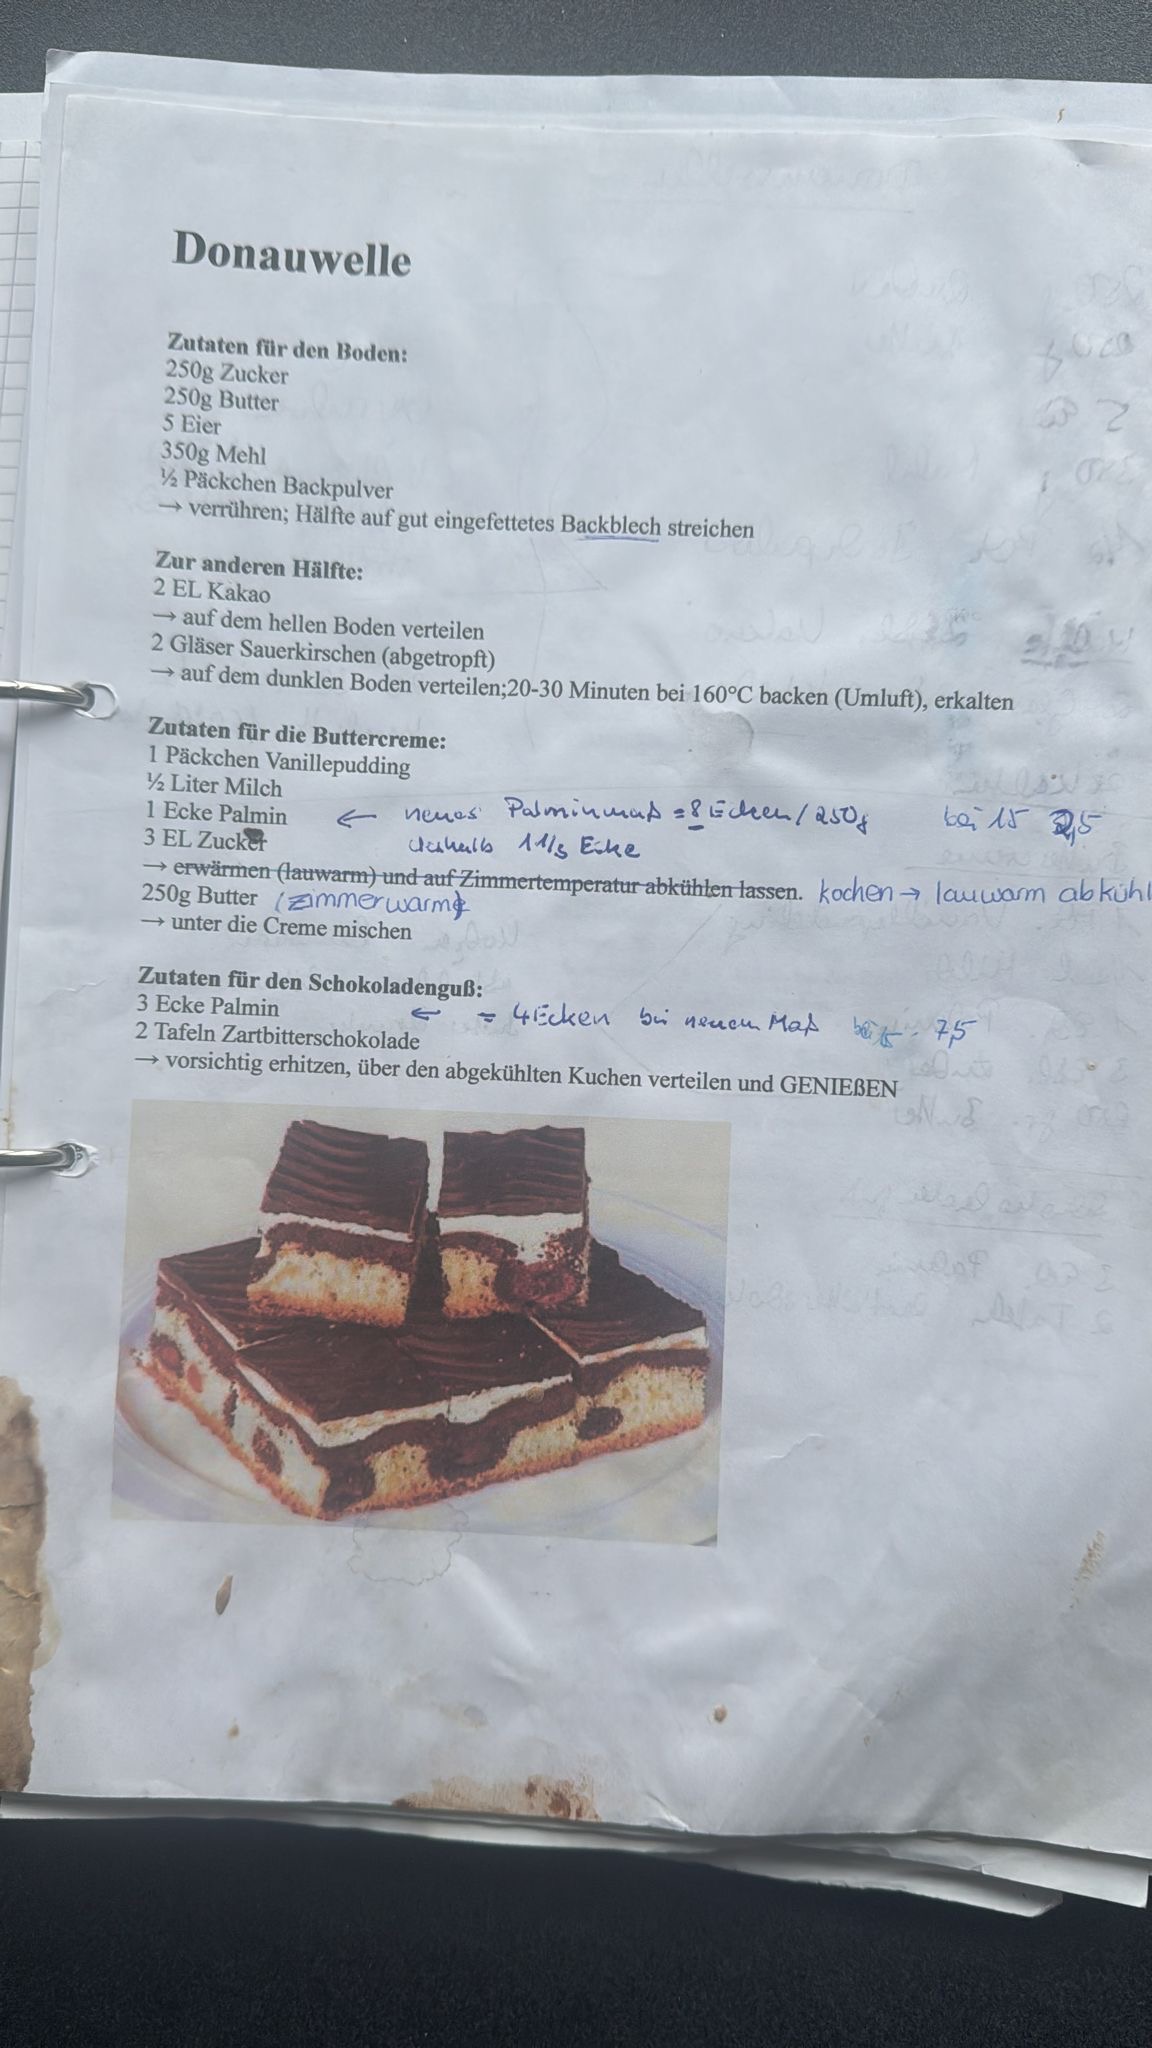 Donauwelle
Zutaten für den Boden:
250g Zucker
250g Butter
5 Eier
350g Mehl
½ Päckchen Backpulver
→ verrühren; Hälfte auf gut eingefettetes Backblech streichen
Zur anderen Hälfte:
2 EL Kakao
→ auf dem hellen Boden verteilen
2 Gläser Sauerkirschen (abgetropft)
→ auf dem dunklen Boden verteilen;20-30 Minuten bei 160°C backen (Umluft), erkalten
Zutaten für die Buttercreme:
1 Päckchen Vanillepudding
½ Liter Milch
1 Ecke Palmin ← neues Palminmaß = 8 Ecken / 250g bei 15 2,5
3 EL Zucker deshalb 1 1/3 Ecke
→ erwärmen (lauwarm) und auf Zimmertemperatur abkühlen lassen. kochen → lauwarm abkühl
250g Butter (zimmerwarm)
→ unter die Creme mischen
Zutaten für den Schokoladenguß:
3 Ecke Palmin ← = 4 Ecken bei neuem Maß bei 15 - 7,5
2 Tafeln Zartbitterschokolade
→ vorsichtig erhitzen, über den abgekühlten Kuchen verteilen und GENIEßEN